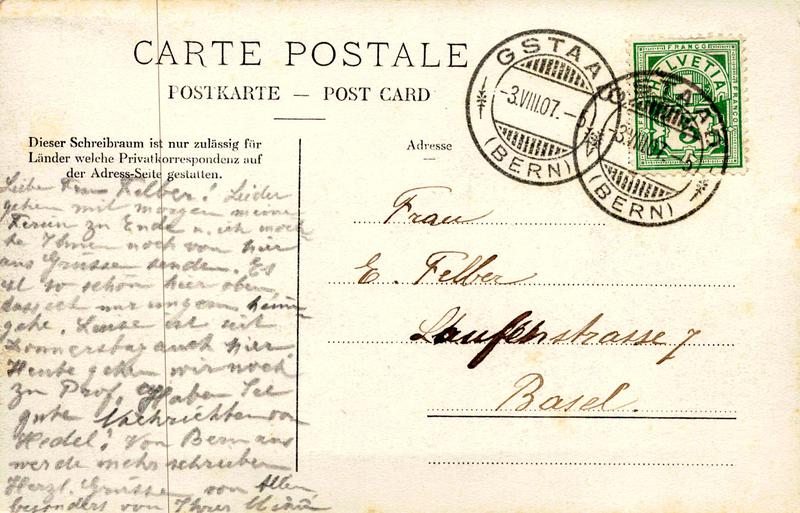 CARTE POSTALE
POSTKARTE — POST CARD
Dieser Schreibraum ist nur zulässig für
Länder welche Privatkorrespondenz auf
der Adress-Seite gestatten.
Adresse
GSTAAD
-3.VIII.07.-5
(BERN)
GSTAAD
-3.VIII.07.-5
(BERN)
FRANCO
HELVETIA
5
Frau
E. Felber
Laufenstrasse 7
Basel.
Liebe Frau Felber! Leider
gehen mit morgen meine
Ferien zu Ende u. ich möch
te Ihnen noch von hier
aus Grüsse senden. Es
ist so schön hier oben
dass ich nur ungern heim
gehe. Luise ist seit
Donnerstag auch hier.
Heute gehen wir noch
zu Prof. Haben Sie
gute Nachrichten von
Hedel? Von Bern aus
werde mehr schreiben
Herzl. Grüsse von Allen
besonders von Ihrer